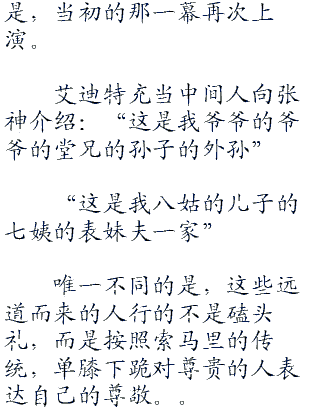 是，当初的那一幕再次上
演。
艾迪特充当中间人向张
神介绍：“这是我爷爷的爷
爷的堂兄的孙子的外孙”
“这是我八姑的儿子的
七姨的表妹夫一家”
唯一不同的是，这些远
道而来的人行的不是磕头
礼，而是按照索马里的传
统，单膝下跪对尊贵的人表
达自己的尊敬。。